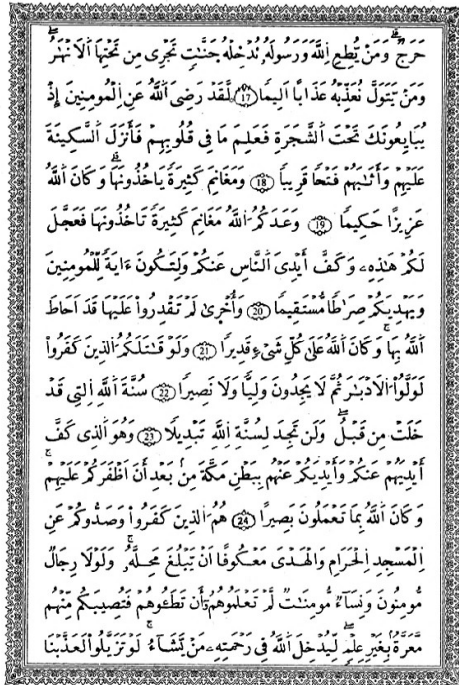 حَرَجٌ وَمَنْ يُّطِعِ اِللَّهَ وَرَسُولَهُۥ نُدْخِلْهُ جَنَّٰتٍ تَجْرِى مِن تَحْتِهَا اَلَانْهَٰرُ
وَمَنْ يَّتَوَلَّ نُعَذِّبْهُ عَذَابًا اَلِيمًا 17 لَّقَدْ رَضِىَ اَللَّهُ عَنِ اِلْمُومِنِينَ إِذْ
يُبَايِعُونَكَ تَحْتَ اَلشَّجَرَةِ فَعَلِمَ مَا فِى قُلُوبِهِمْ فَأَنزَلَ اَلسَّكِينَةَ
عَلَيْهِمْ وَأَثَٰبَهُمْ فَتْحًا قَرِيبًا 18 وَمَغَانِمَ كَثِيرَةً يَاخُذُونَهَا وَكَانَ اَللَّهُ
عَزِيزًا حَكِيمًا 19 وَعَدَكُمُ اَللَّهُ مَغَانِمَ كَثِيرَةً تَاخُذُونَهَا فَعَجَّلَ
لَكُمْ هَٰذِهِۦ وَكَفَّ أَيْدِىَ اَلنَّاسِ عَنكُمْ وَلِتَكُونَ ءَايَةً لِّلْمُومِنِينَ
وَيَهْدِيَكُمْ صِرَٰطًا مُّسْتَقِيمًا 20 وَأُخْرَىٰ لَمْ تَقْدِرُواْ عَلَيْهَا قَدَ اَحَاطَ
اَللَّهُ بِهَا وَكَانَ اَللَّهُ عَلَىٰ كُلِّ شَىْءٍ قَدِيرًا 21 وَلَوْ قَٰتَلَكُمُ اَلذِينَ كَفَرُواْ
لَوَلَّوُاْ اَلَادْبَٰرَ ثُمَّ لَا يَجِدُونَ وَلِيًّا وَلَا نَصِيرًا 22 سُنَّةَ اَللَّهِ اِلتِى قَدْ
خَلَتْ مِن قَبْلُ وَلَن تَجِدَ لِسُنَّةِ اِللَّهِ تَبْدِيلًا 23 وَهُوَ اَلذِى كَفَّ
أَيْدِيَهُمْ عَنكُمْ وَأَيْدِيَكُمْ عَنْهُم بِبَطْنِ مَكَّةَ مِنۢ بَعْدِ أَنَ اَظْفَرَكُمْ عَلَيْهِمْ
وَكَانَ اَللَّهُ بِمَا تَعْمَلُونَ بَصِيرًا 24 هُمُ اُلذِينَ كَفَرُواْ وَصَدُّوكُمْ عَنِ
اِلْمَسْجِدِ اِلْحَرَامِ وَالْهَدْىَ مَعْكُوفًا اَنْ يَّبْلُغَ مَحِلَّهُۥ وَلَوْلَا رِجَالٌ
مُّومِنُونَ وَنِسَآءٌ مُّومِنَٰتٌ لَّمْ تَعْلَمُوهُمُۥ أَن تَطَـُٔوهُمْ فَتُصِيبَكُم مِّنْهُم
مَّعَرَّةٌۢ بِغَيْرِ عِلْمٍ لِّيُدْخِلَ اَللَّهُ فِى رَحْمَتِهِۦ مَنْ يَّشَآءُ لَوْ تَزَيَّلُواْ لَعَذَّبْنَا